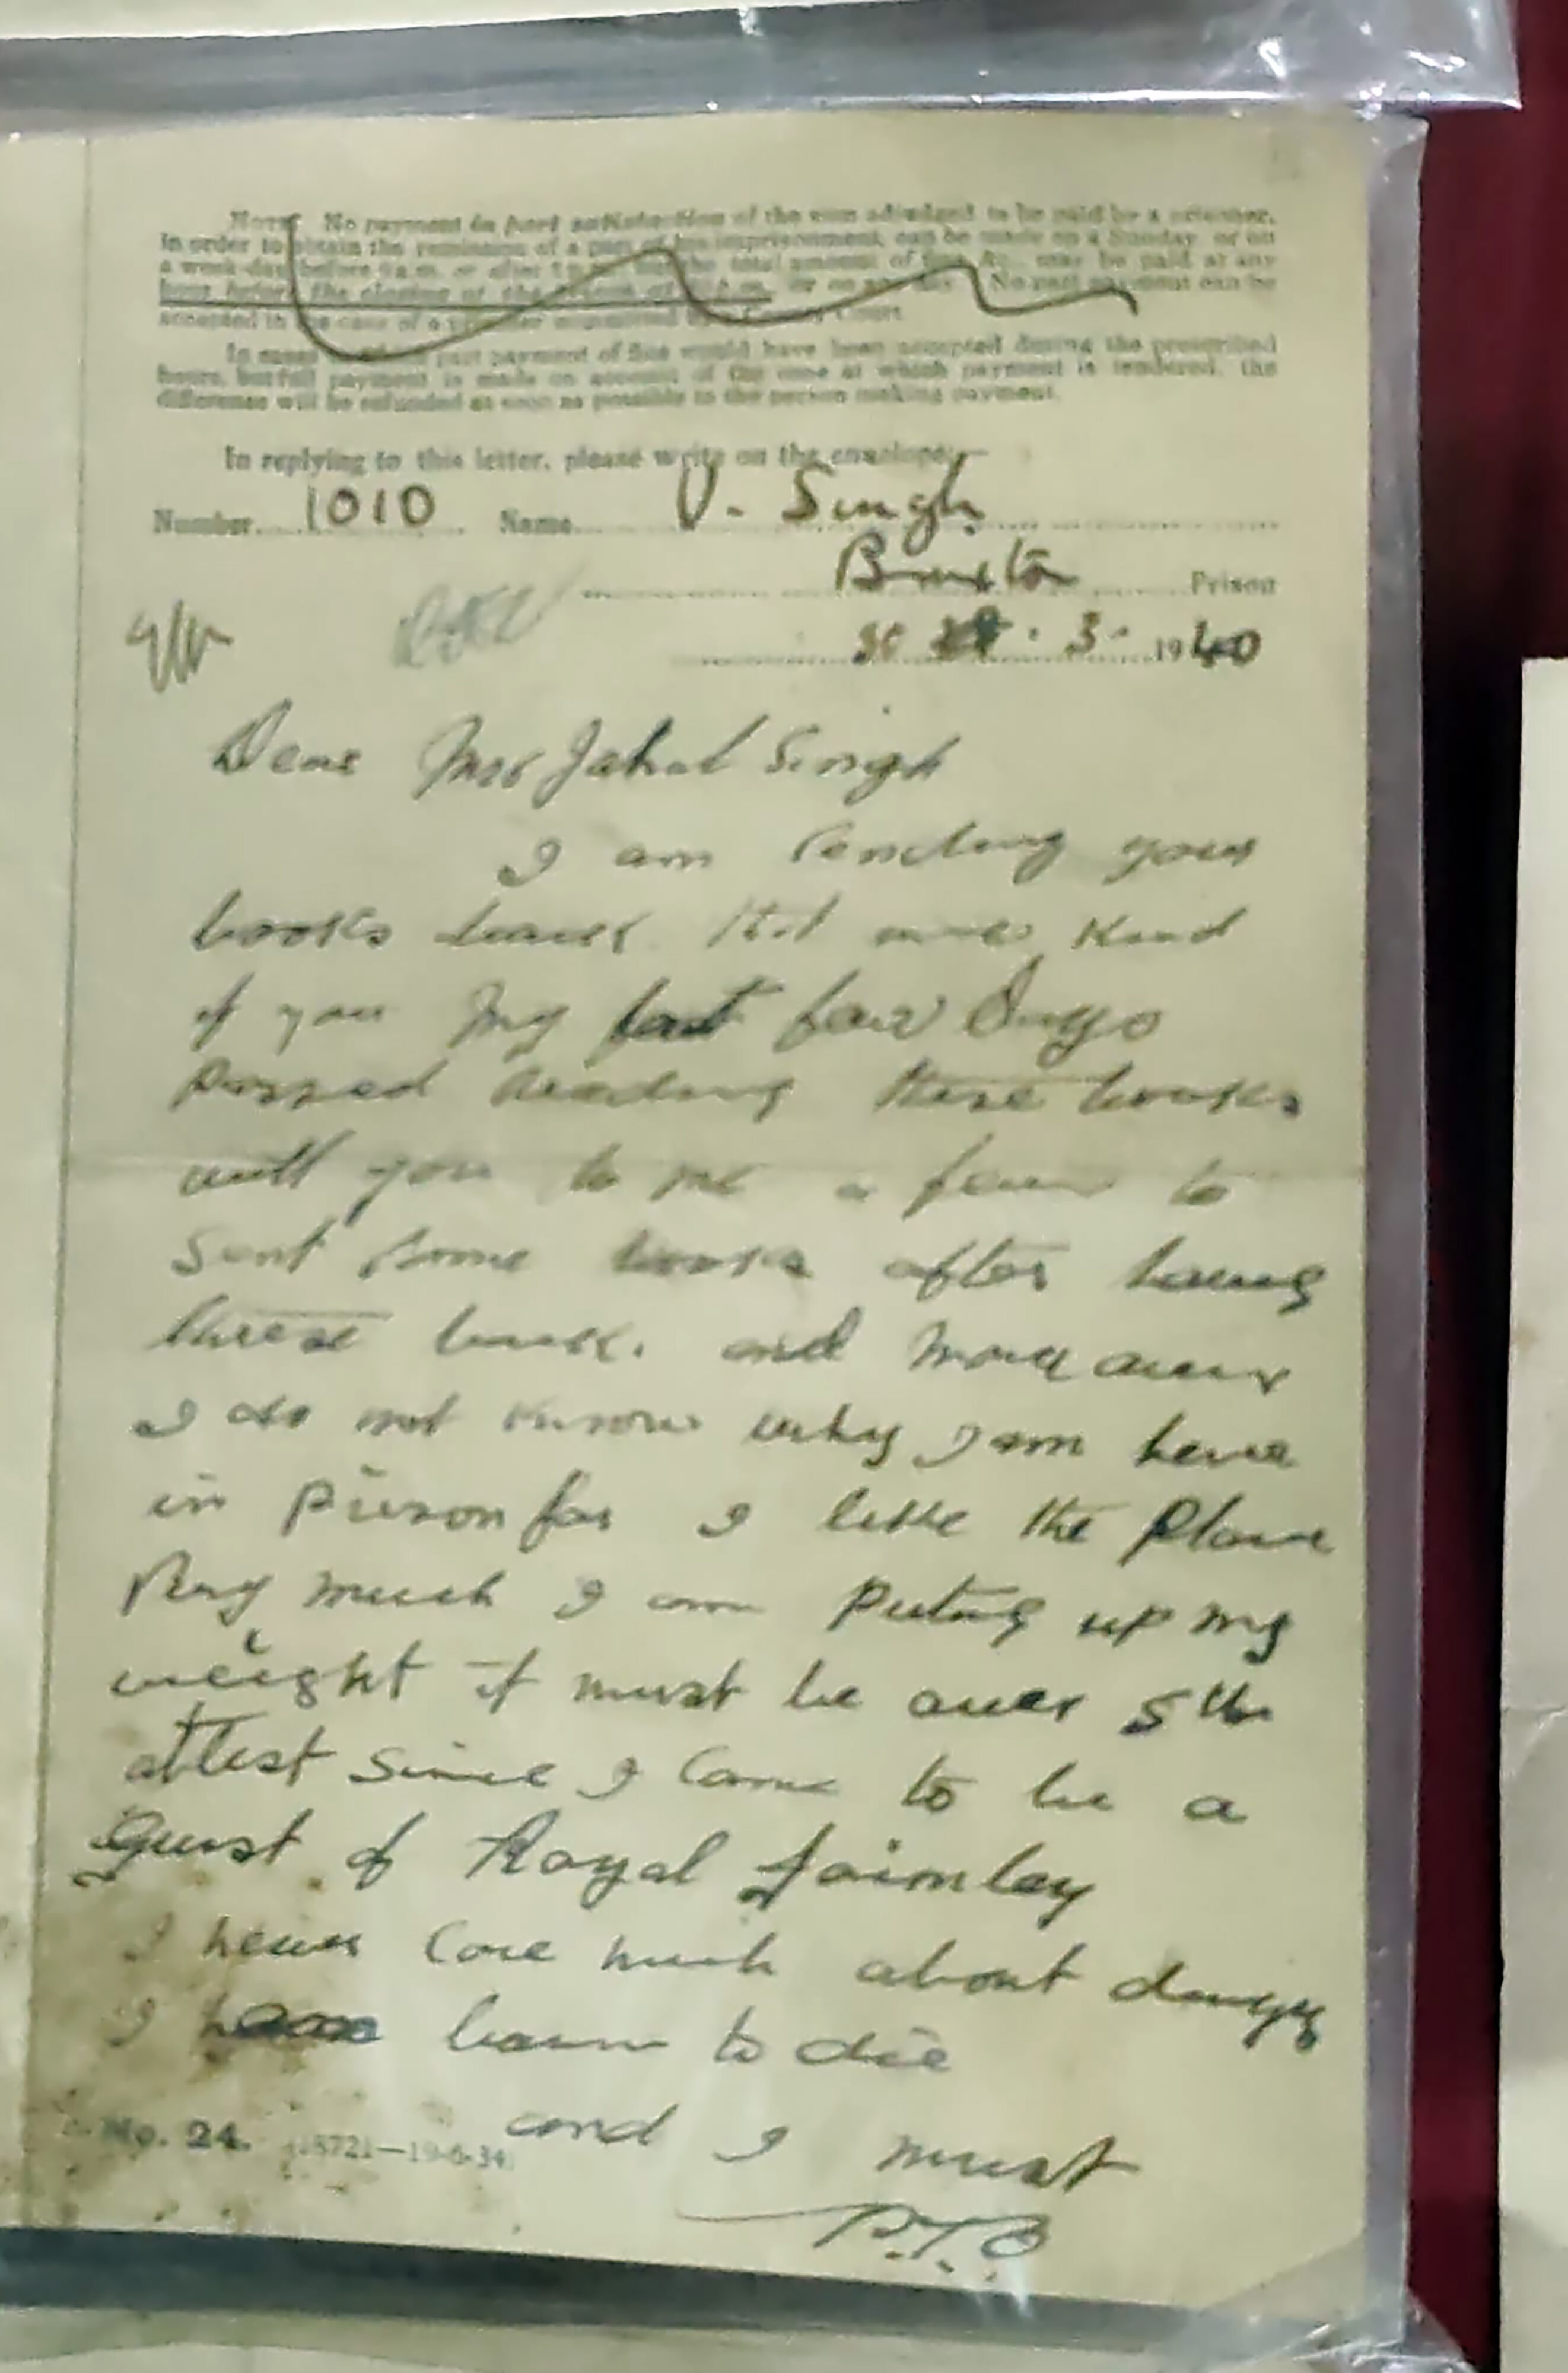 NOTE. No payment in part satisfaction of the sum adjudged to be paid by a prisoner,
in order to obtain the remission of a part of his imprisonment, can be made on a Sunday, or on
a week-day before 9 a.m. or after the total amount of fine &c., may be paid at any
hour before the closing of the prison at or on any day. No part payment can be
accepted in the case of a prisoner County Court.
In cases in which part payment of fine would have been accepted during the prescribed
hours, but full payment is made on account of the time at which payment is tendered, the
difference will be refunded as soon as possible to the person making payment.
In replying to this letter, please write on the envelope:—
Number 1010 Name U. Singh
Brixton Prison
3. 1940
Dear Mr Jahal Singh
I am sending your
books back that was kind
of you My few Days
Passed reading these books
will you to me a favr to
sent some books after having
these back. and
I do not know why I am here
in Prison for I like the Place
much I am Puting up my
weight it must be over 5 lb
atlest since I came to be a
Guest of Royal
I never care much about
I born to die
and I must
P.T.O
No. 24. (18721—19-6-34)